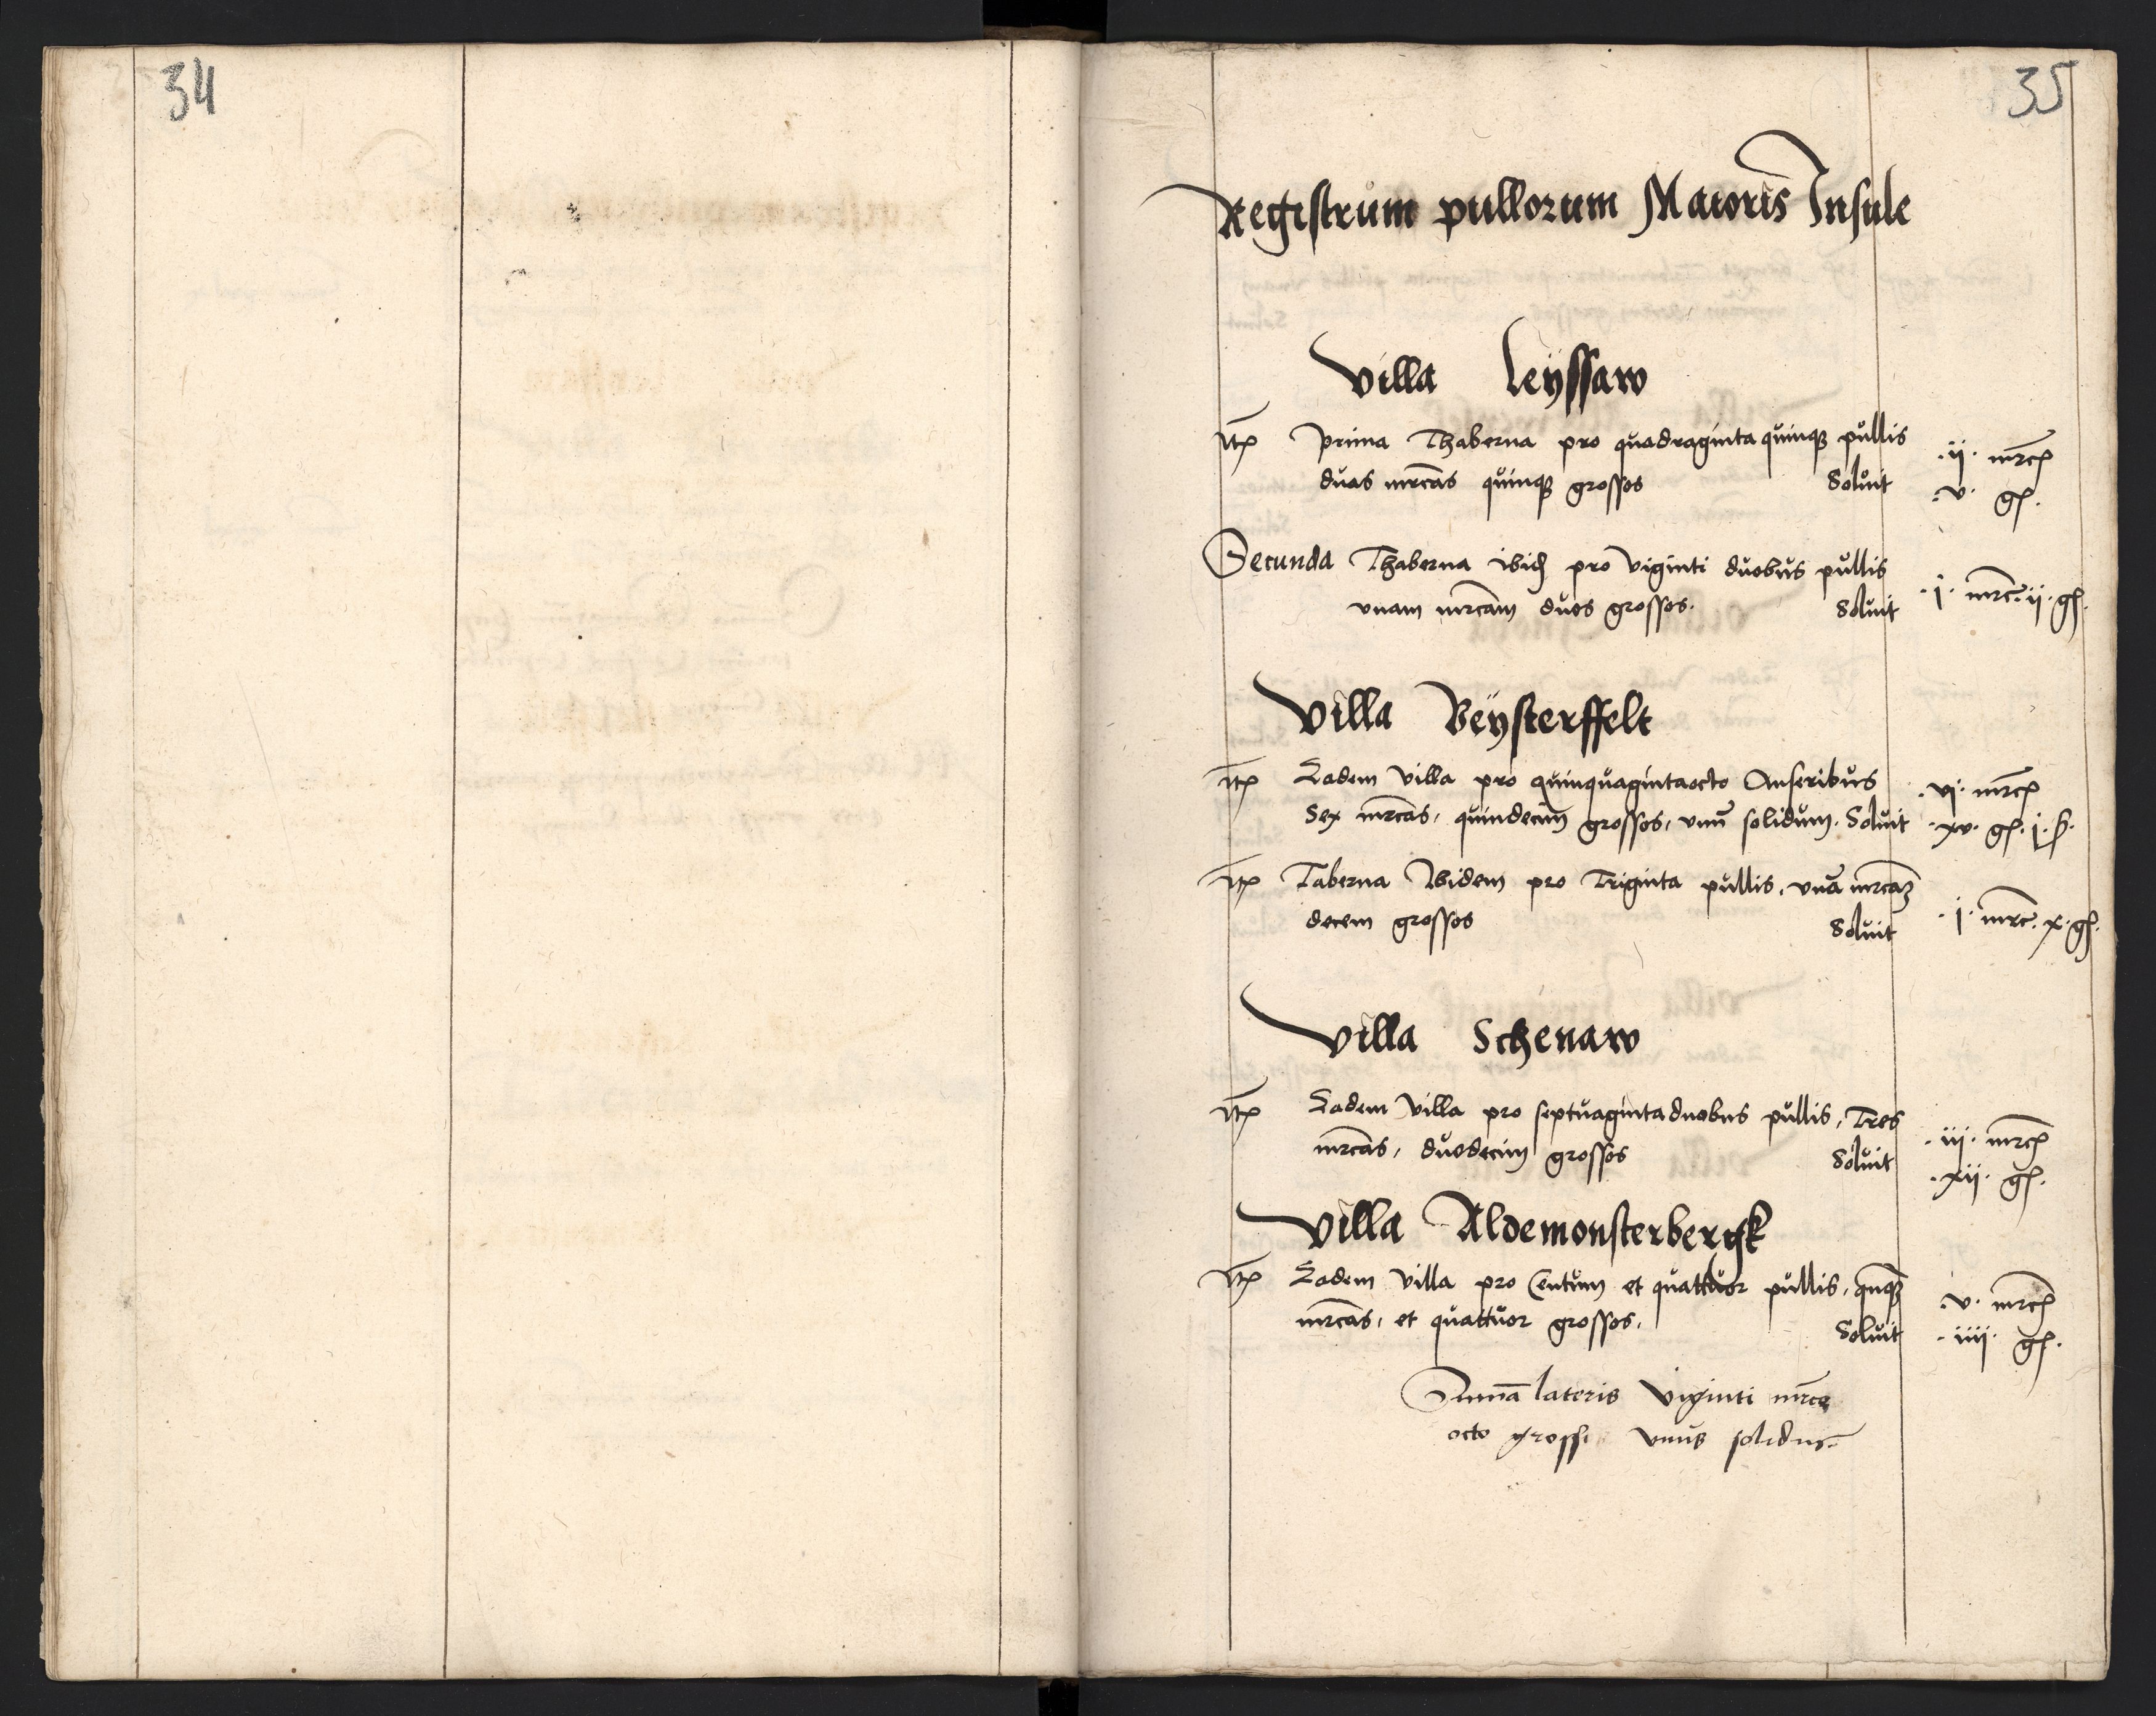 34
35
Registrum pullorum Maioris Insule
Villa Leÿssaw
Itẽ Prima Thaberna pro quadragintaquinqꝫ pullis
duas mrcãs quinqꝫ grossos Soluit
·ij· mrc̃
·v· gʒ.
Secunda Thaberna ibid̃ pro viginti duobus pullis
vnam mrcam duos grossos. Soluit
·j· mrc̃ ·ij· gʒ.
Villa Beÿsterffelt
Itẽ Eadem villa pro quinquagintaocto Anseribus
Sex mrcãs, quindecim grossos, vnũ solidum. Soluit
·vj· mrc̃
·xv· gʒ. j. ß.
Itẽ Taberna Ibidem pro Triginta pullis, vnã mrcaʒ
decem grossos Soluit
·j· mrc. x. gʒ.
Villa Schenaw
Itẽ Eadem villa pro septuagintaduobus pullis, Tres
mrcãs, duodecim grossos Soluit
·iij· mrc̃
·xij· gʒ.
Villa Aldemonsterbergk
Itẽ Eadem villa pro Centum et quattuor pullis, quĩqꝫ
mrcãs, et quattuor grossos. Soluit
·v· mrc̃
·iiij· gʒ.
Summa lateris Viginti mrce
octo grossi vnus solidus